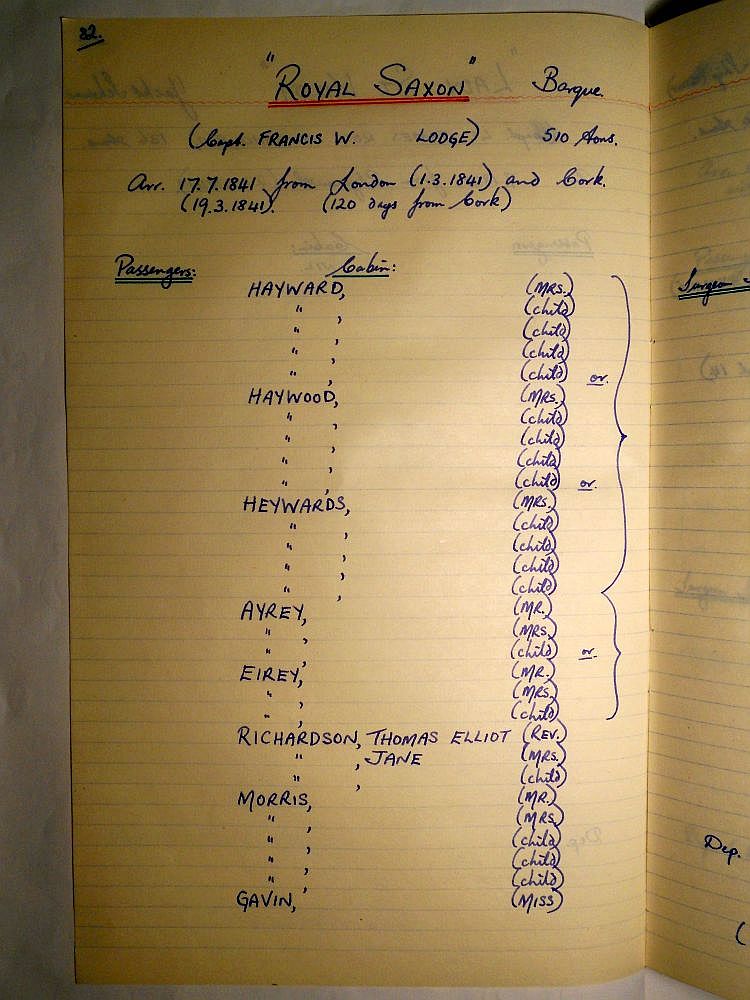 82.
"ROYAL SAXON" Barque.
(Capt. FRANCIS W. LODGE) 510 tons.
Arr. 17.7.1841 from London (1.3.1841) and Cork.
(19.3.1841). (120 days from Cork)
Passengers: Cabin:
HAYWARD, (MRS.)
" , (child)
" , (child)
" , (child)
" , (child) or
HAYWOOD, (MRS.)
" , (child)
" , (child)
" , (child)
" , (child) or
HEYWARDS, (MRS.)
" , (child)
" , (child)
" , (child)
" , (child)
AYREY, (MR.)
" , (MRS.)
" , (child) or
EIREY, (MR.)
" , (MRS.)
" , (child)
RICHARDSON, THOMAS ELLIOT (REV.)
" , JANE (MRS.)
" , (child)
MORRIS, (MR.)
" , (MRS.)
" , (child)
" , (child)
" , (child)
GAVIN, (MISS)
Surgeon
Dep.
(